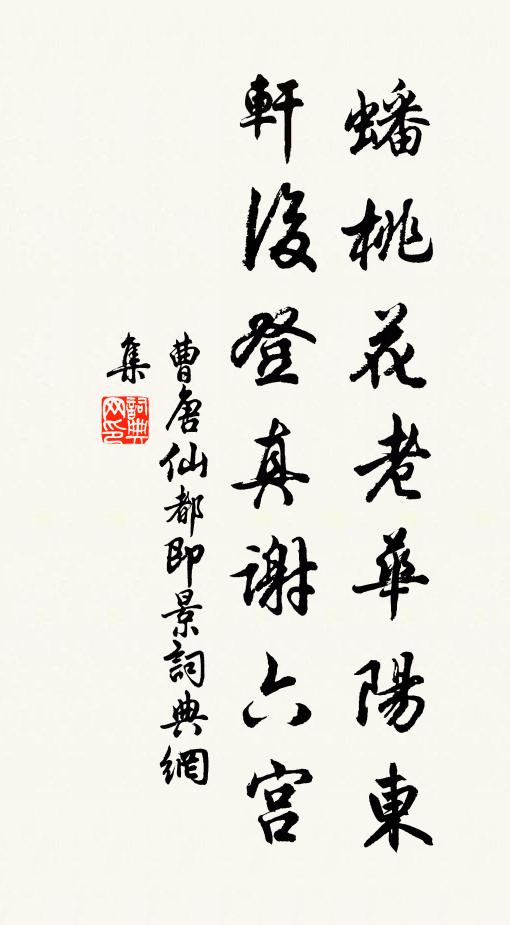 蟠桃花老華陽東
軒後登真謝六宮
曹唐仙都即景詞典網
集
詞典網印